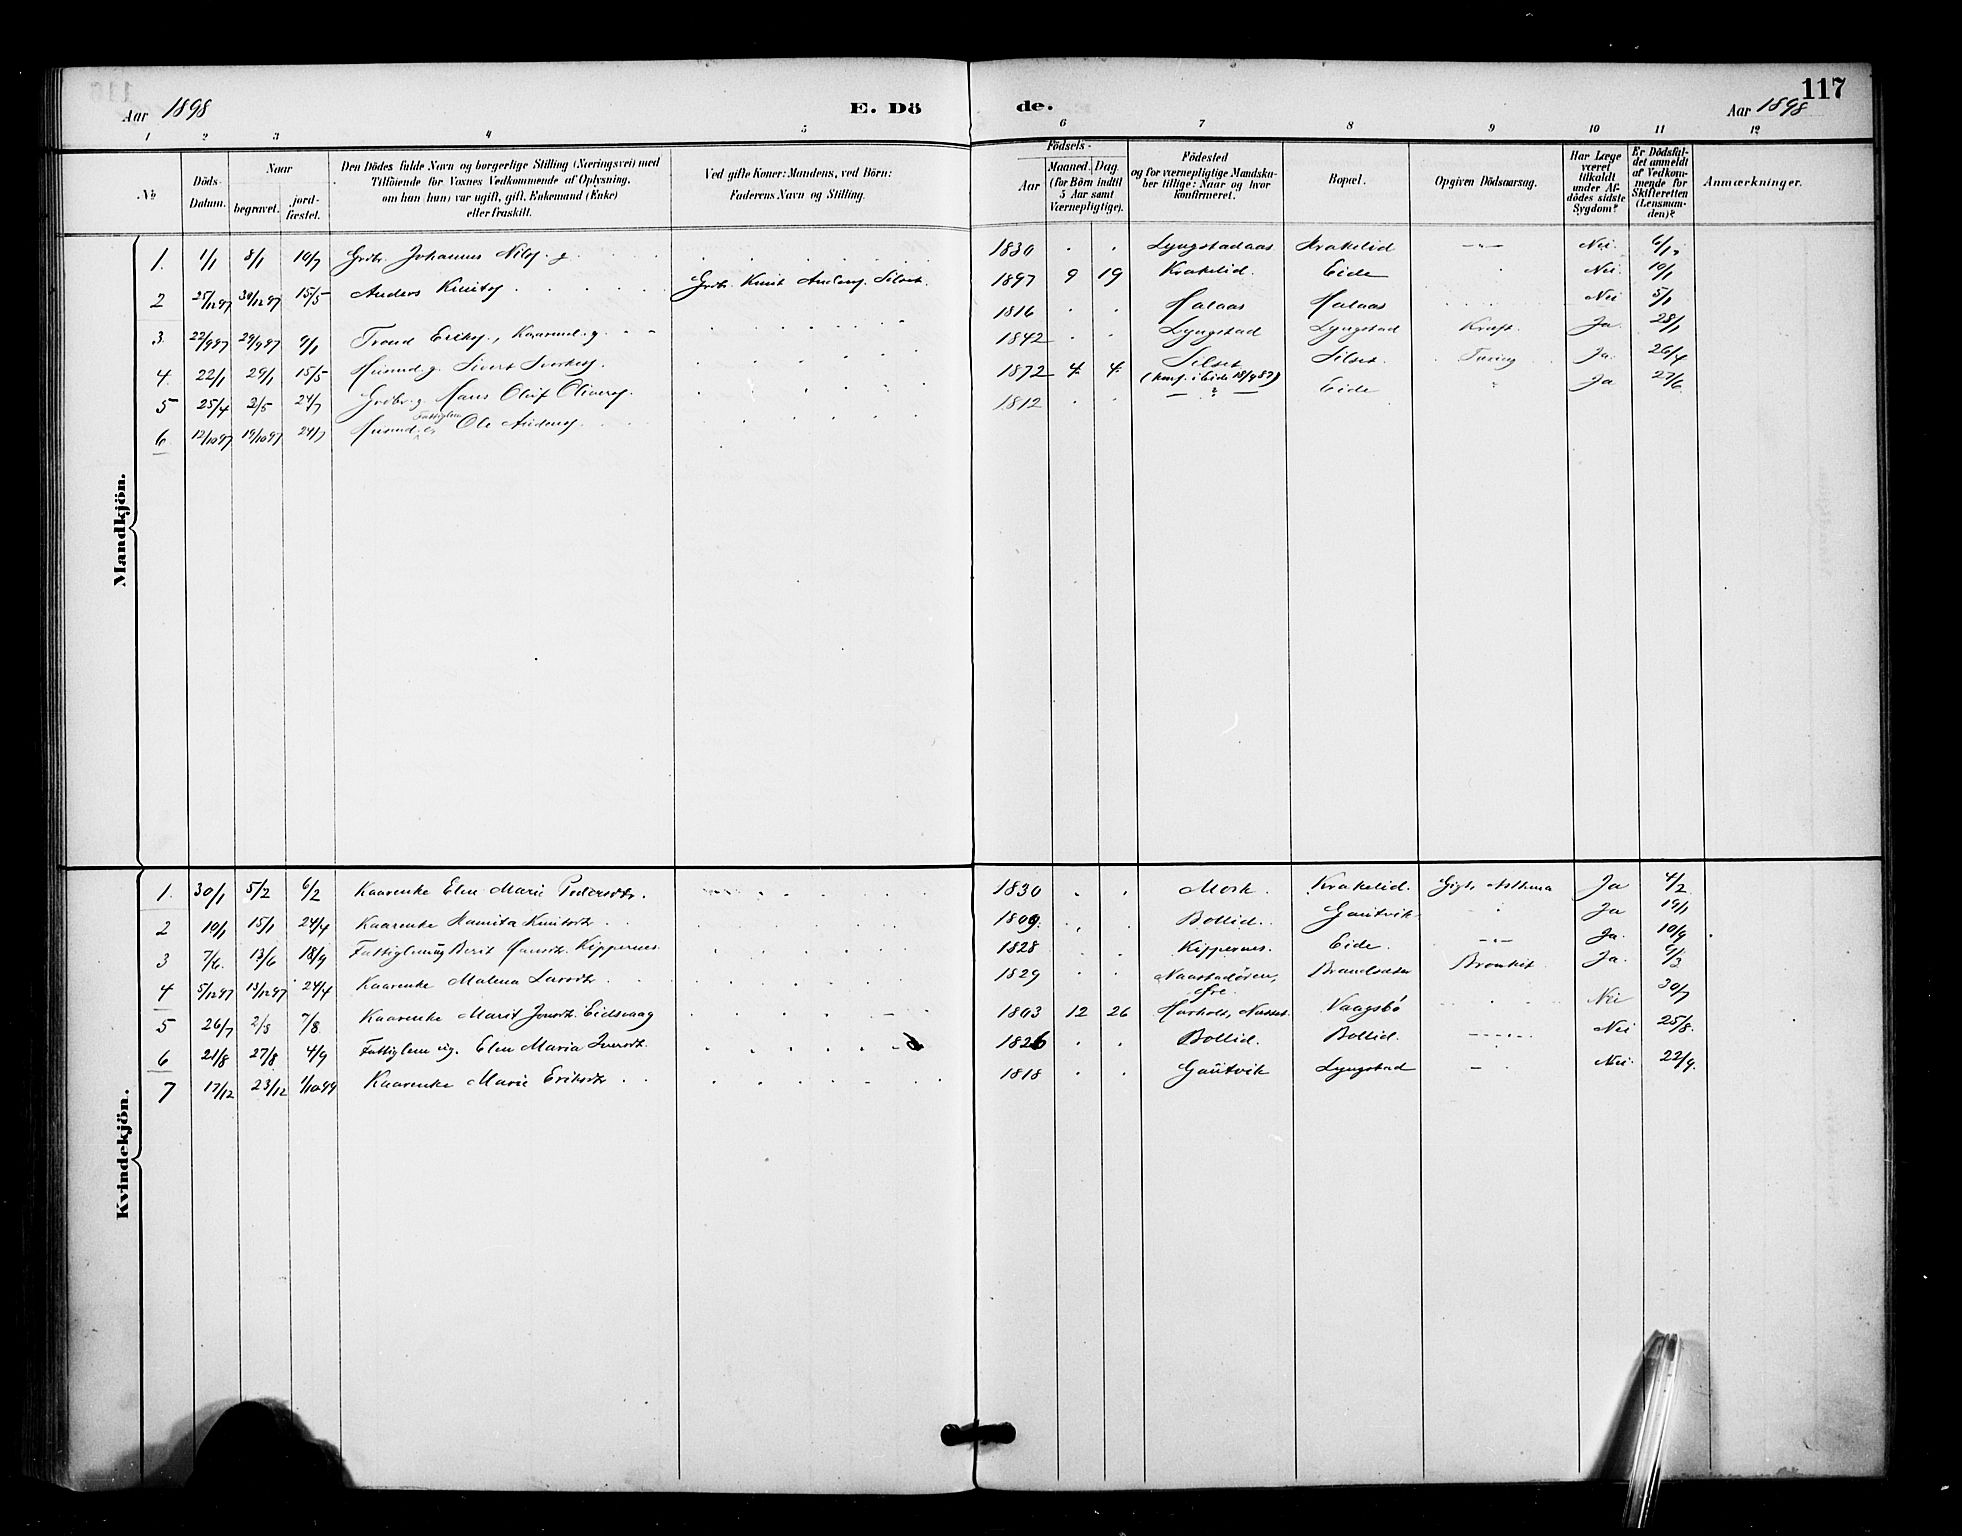 117
Aar 1898
E. Dö
de.
Aar 1898
1 2 3 4 5 6 7 8 9 10 11 12
№
Döds-
Datum.
Naar
begravet.
jord-
fæstet.
Den Dödes fulde Navn og borgerlige Stilling (Næringsvei) med
Tilföiende for Voxnes Vedkommende af Oplysning,
om han (hun) var ugift, gift, Enkemand (Enke)
eller fraskilt.
Ved gifte Koner: Mandens, ved Börn:
Faderens Navn og Stilling.
Födsels-
Aar
Maaned. Dag.
(for Börn indtil
5 Aar samt
Værnepligtige).
Födested
og for værnepligtige Mandska-
ber tillige: Naar og hvor
konfirmeret.
Bopæl.
Opgiven Dödsaarsag.
Har Læge
været
tilkaldt
under Af-
dödes sidste
Sygdom?
Er Dödsfal-
det anmeldt
af Vedkom-
mende for
Skifteretten
(Lensman-
den)?
Anmærkninger.
Mandkjön.
1. 1/1 8/1 10/7 Grdbr. Johannes Nilss. g. 1830 Lyngstadaas Krakelid Nei
2 25/12 97 30/12 97 15/5 Anders Knuts. Grdbr. Knut Anders. Silset. 1897 9 19 Krakelid. Eide Nei 10/1
3. 22/9 97 29/9 97 9/1 Trond Eriks., Kaarmd. g. 1816 Halaas Halaas Nei 5/1
4. 22/1 29/1 15/5 Husmd. g. Sivert Siverts. 1842 Lyngstad Lyngstad Kræft. Ja 28/1
5 25/4 2/5 24/7 Grdbr. g. Hans Oluf Olivers. 1872 4 4 Silset (konf. i Eide 18/9 87) Silset. Tæring Ja 26/4
6. 12/10 97 19/10 97 24/7 Husmd. Fattiglem Ole Anders. 1812 Eide Ja 27/6
Kvindekjön.
1. 30/1 5/2 6/2 Kaarenke Elen Marie Pedersdtr. 1830 Mork. Krakelid. Gigt, Asthma Ja 4/2
2 10/1 15/1 24/4 Kaarenke Knutsdtr. 1809. Bollid. Gautvik Ja 19/1
3 7/6. 13/6 18/9 Fattiglem ug Berit Kippernes. 1828 Kippernes. Eide. Ja. 10/9
4 5/12 97 13/12 97 24/4 Kaarenke Malena Larsdtr. 1829 Naastadören, Øre. Brandsæter Bronkit Ja. 9/3
5 26/7 2/8 7/8 Kaarenke Marit Jonsdtr. Eidsvaag 1803 12 26 Nesset. Vaagsbö Nei 30/7
6 21/8 27/8 4/9 Fattiglem ug. Elen Maria Iversdtr. 1826 Bollid. Bollid. Nei 25/8.
7 17/12 23/12 1/10 99 Kaarenke Marie Eriksdtr 1818 Gautvik Lyngstad Nei. 22/9.